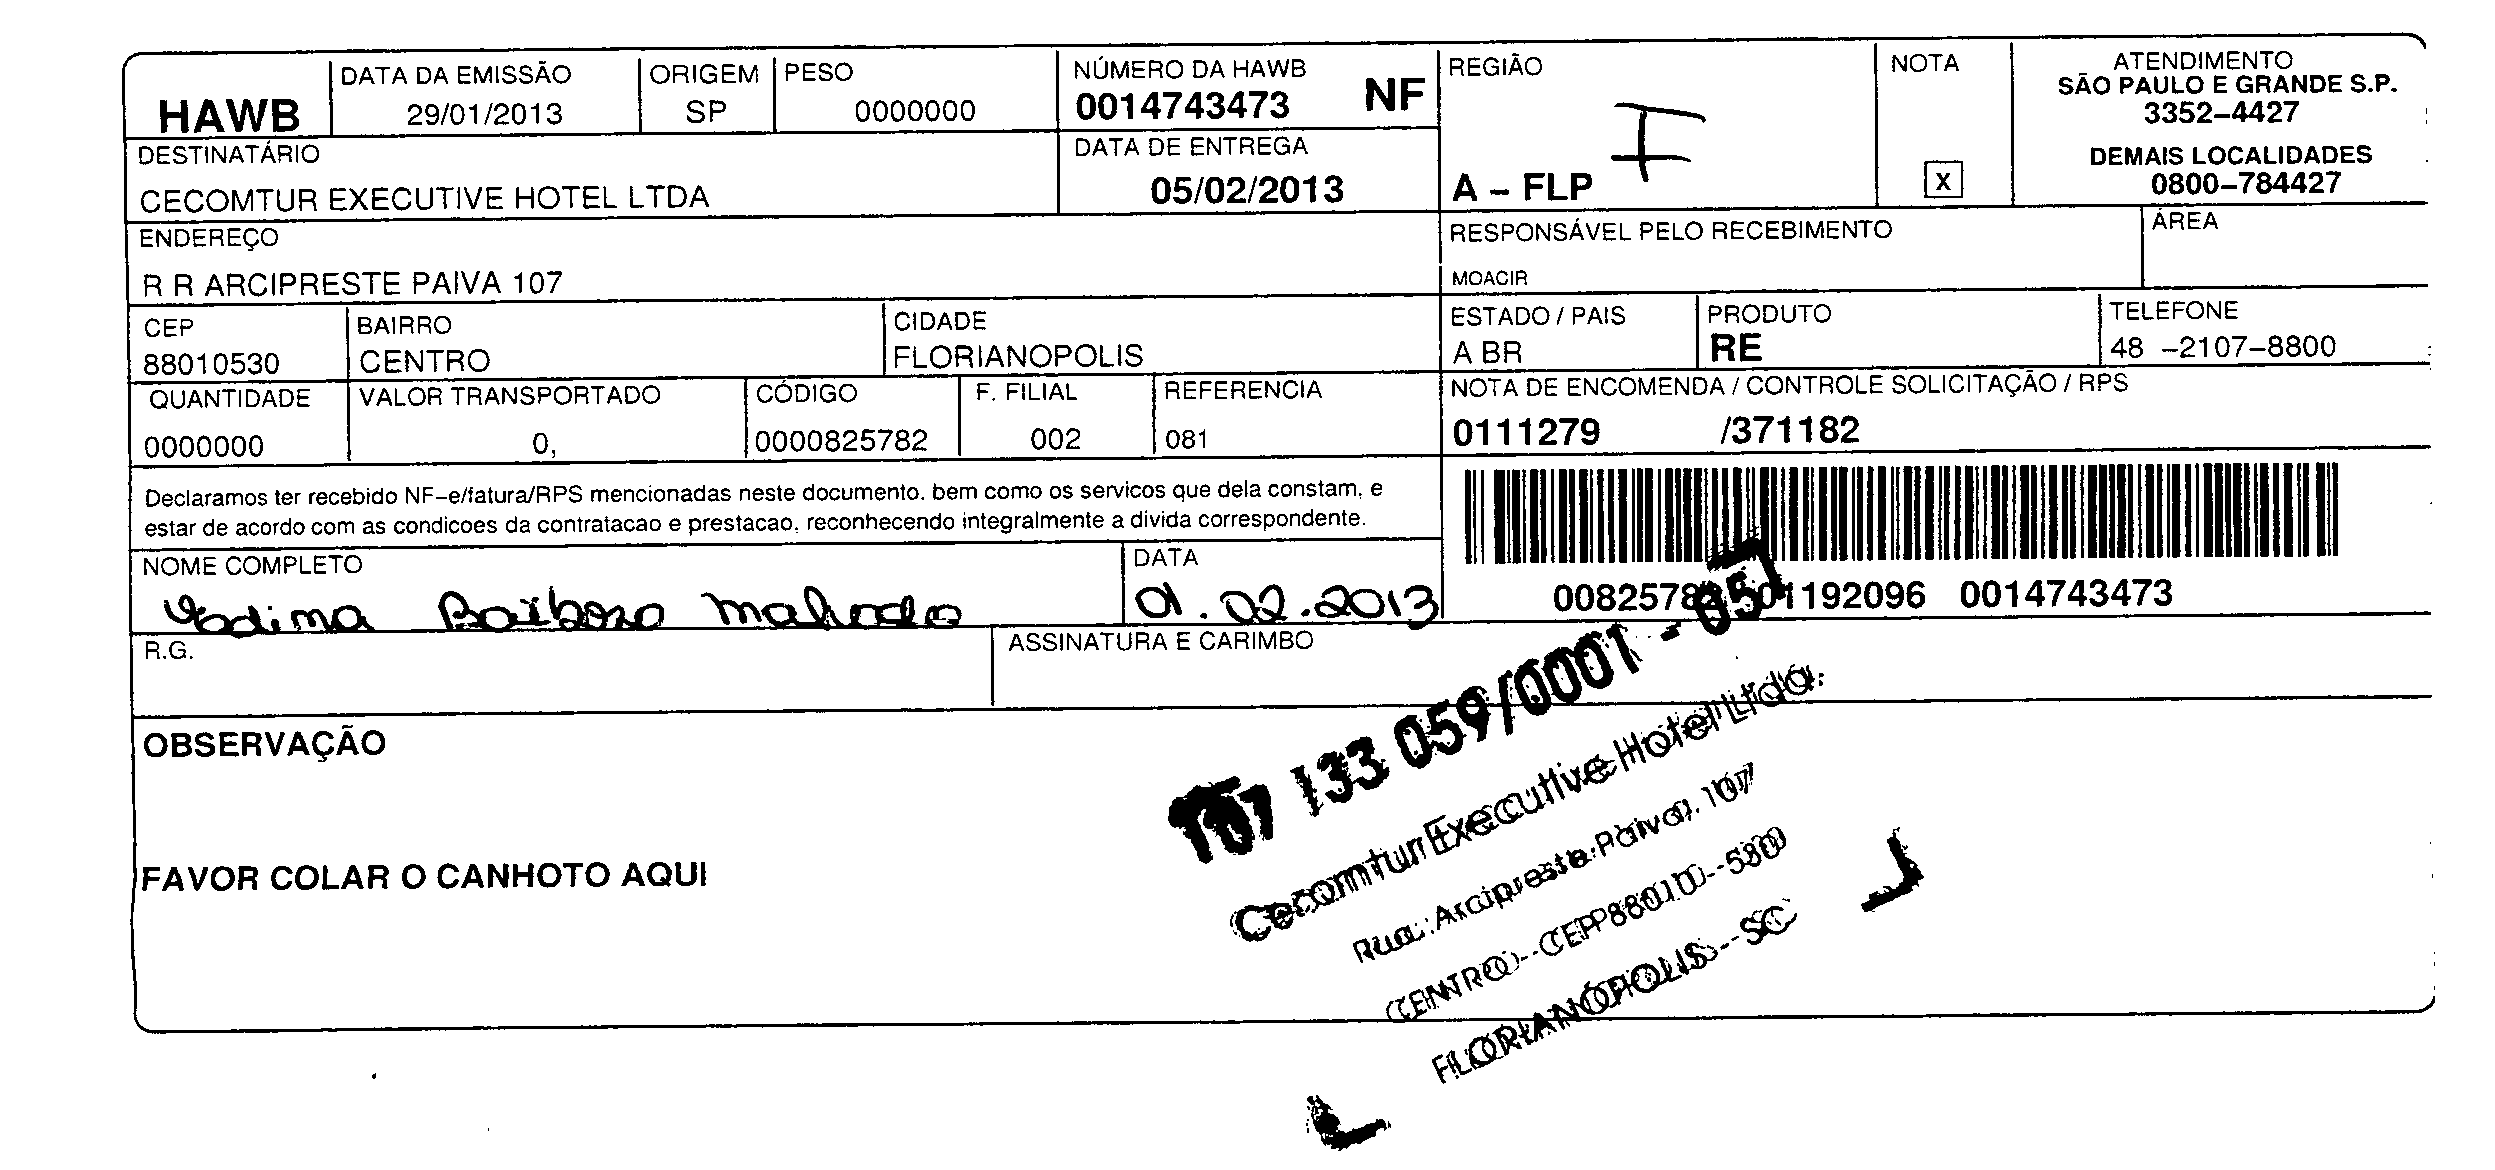 HAWB
DATA DA EMISSÃO
29/01/2013
ORIGEM
SP
PESO
0000000
NÚMERO DA HAWB
0014743473 NF
REGIÃO
A – FLP
NOTA
X
ATENDIMENTO
SÃO PAULO E GRANDE S.P.
3352–4427
DEMAIS LOCALIDADES
0800–784427
DESTINATÁRIO
CECOMTUR EXECUTIVE HOTEL LTDA
DATA DE ENTREGA
05/02/2013
ENDEREÇO
R R ARCIPRESTE PAIVA 107
RESPONSÁVEL PELO RECEBIMENTO
MOACIR
ÁREA
CEP
88010530
BAIRRO
CENTRO
CIDADE
FLORIANOPOLIS
ESTADO / PAIS
A BR
PRODUTO
RE
TELEFONE
48 –2107–8800
QUANTIDADE
0000000
VALOR TRANSPORTADO
0,
CÓDIGO
0000825782
F. FILIAL
002
REFERENCIA
081
NOTA DE ENCOMENDA / CONTROLE SOLICITAÇÃO / RPS
0111279 /371182
Declaramos ter recebido NF–e/fatura/RPS mencionadas neste documento. bem como os servicos que dela constam, e
estar de acordo com as condicoes da contratacao e prestacao, reconhecendo integralmente a divida correspondente.
0014743473
NOME COMPLETO
DATA
01.02.2013
R.G.
ASSINATURA E CARIMBO
OBSERVAÇÃO
FAVOR COLAR O CANHOTO AQUI
133 059/0001 - 05
Cecomtur Executive Hotel Ltda.
Rua: Arcipreste Paiva, 107
CENTRO - CEP 88010 - 530
FLORIANÓPOLIS - SC